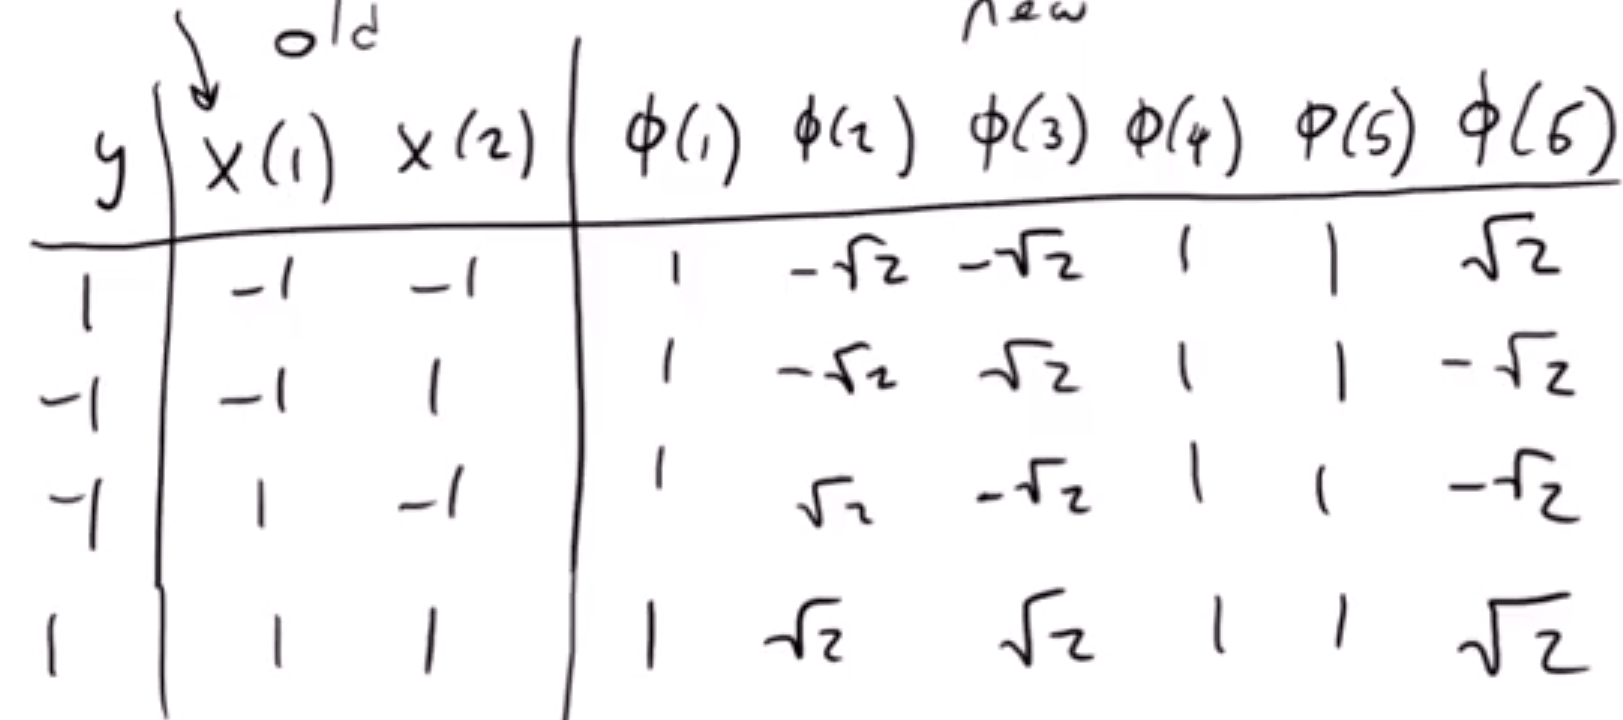 old new
y x(1) x(2) ϕ(1) ϕ(2) ϕ(3) ϕ(4) ϕ(5) ϕ(6)
1 -1 -1 1 -√2 -√2 1 1 √2
-1 -1 1 1 -√2 √2 1 1 -√2
-1 1 -1 1 √2 -√2 1 1 -√2
1 1 1 1 √2 √2 1 1 √2